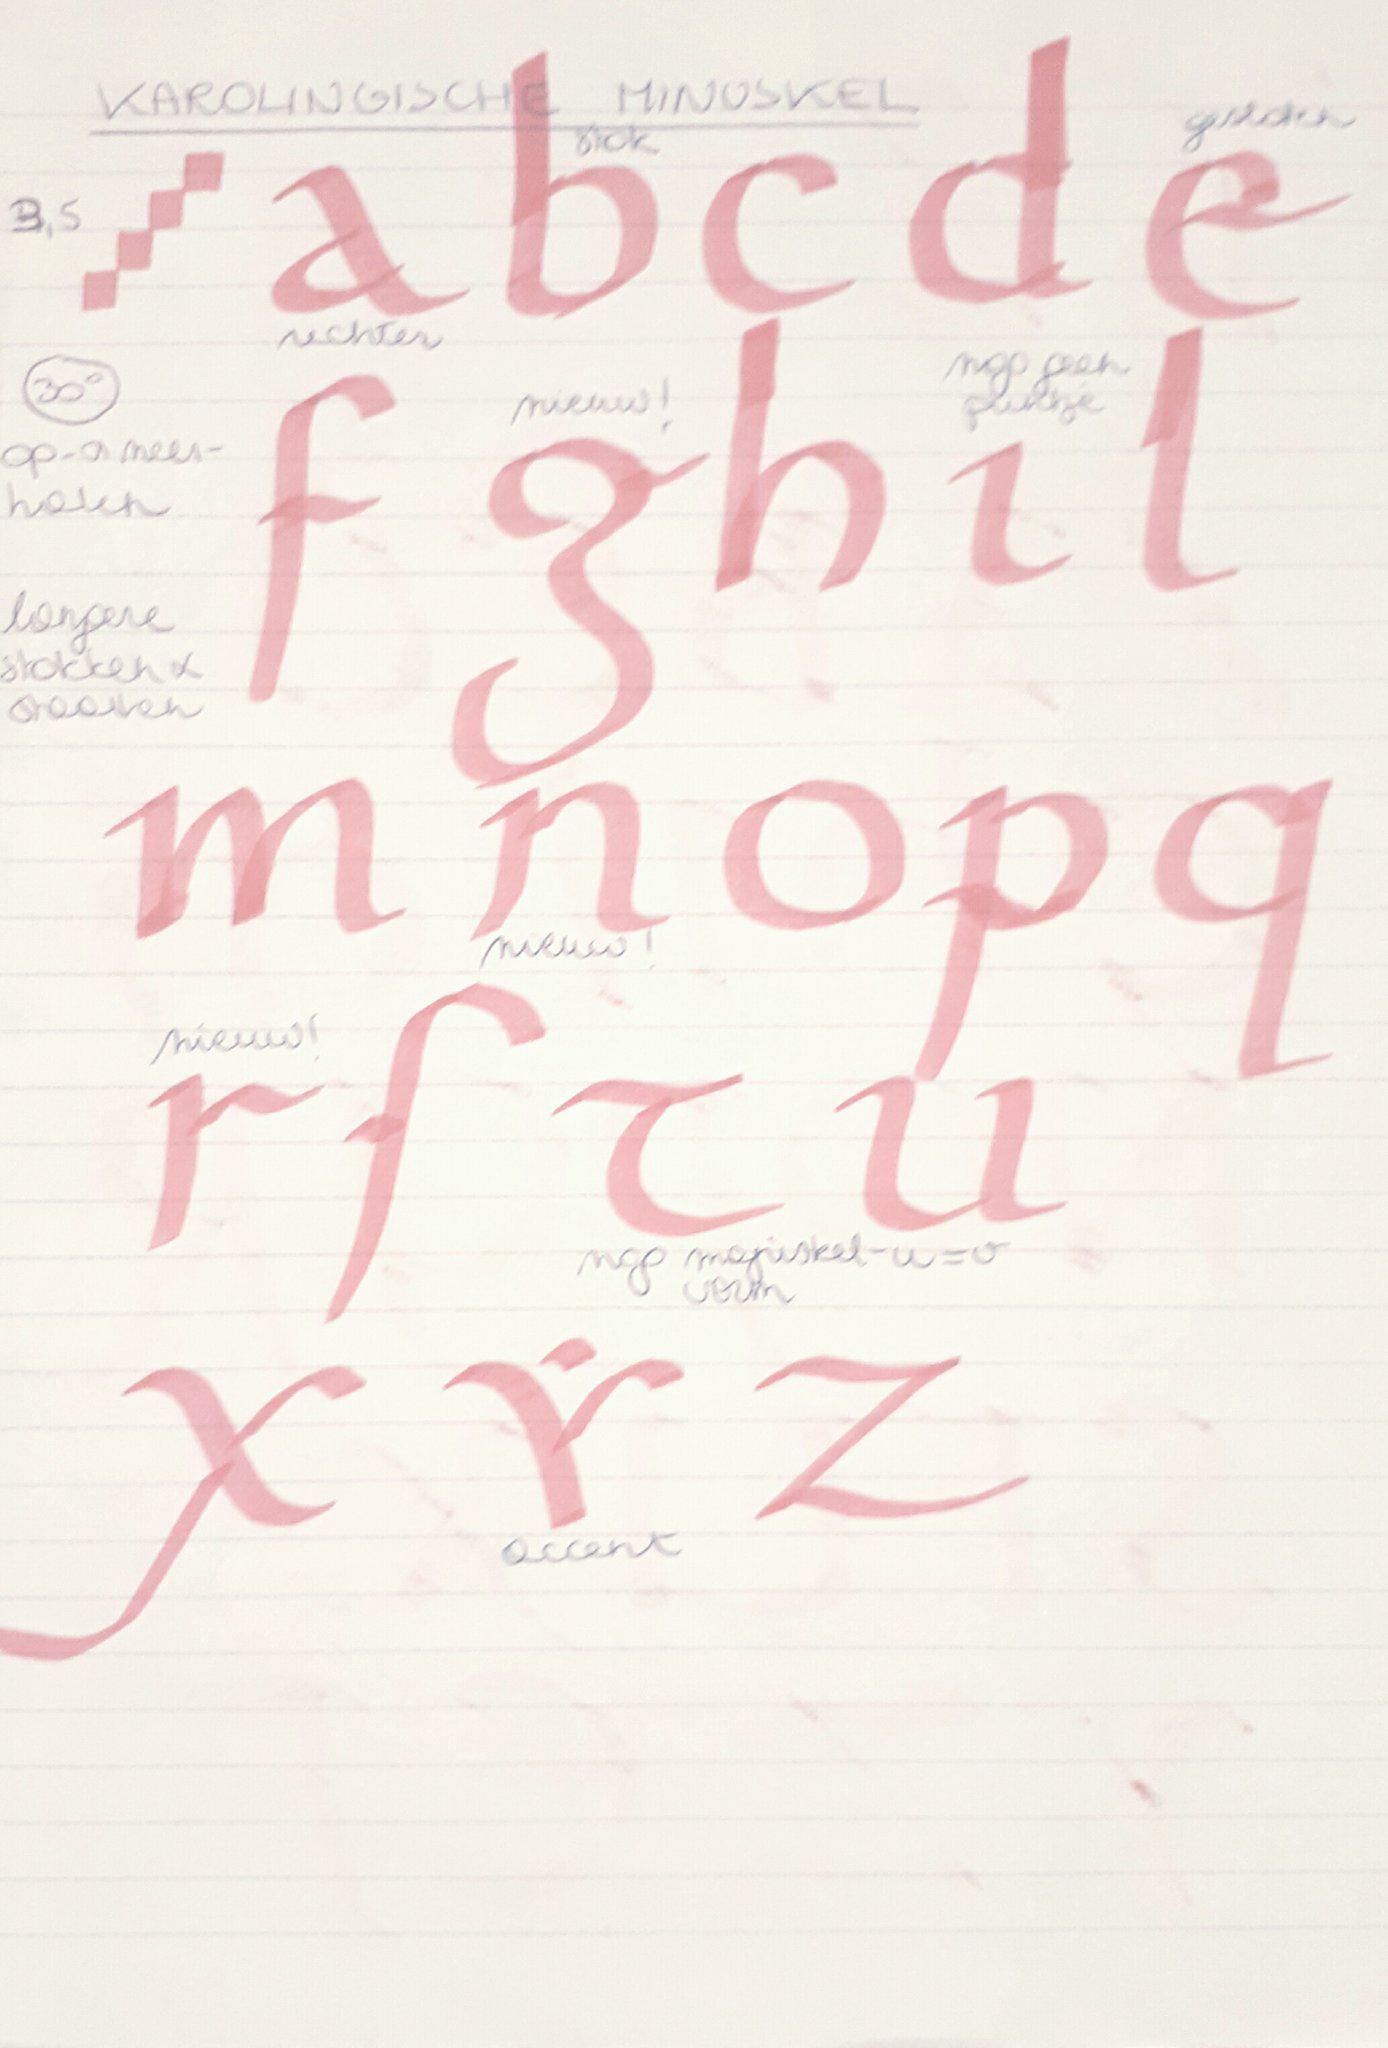 KAROLINGISCHE MINUSKEL
stok
gesloten
3,5
a b c d e
rechter
30°
nieuw!
nog geen
puntje
op- & neer-
halen
f g h i l
langere
stokken &
staarten
m n o p q
nieuw!
nieuw!
r ſ t u
nog majuskel-u=v
vorm
x y z
accent